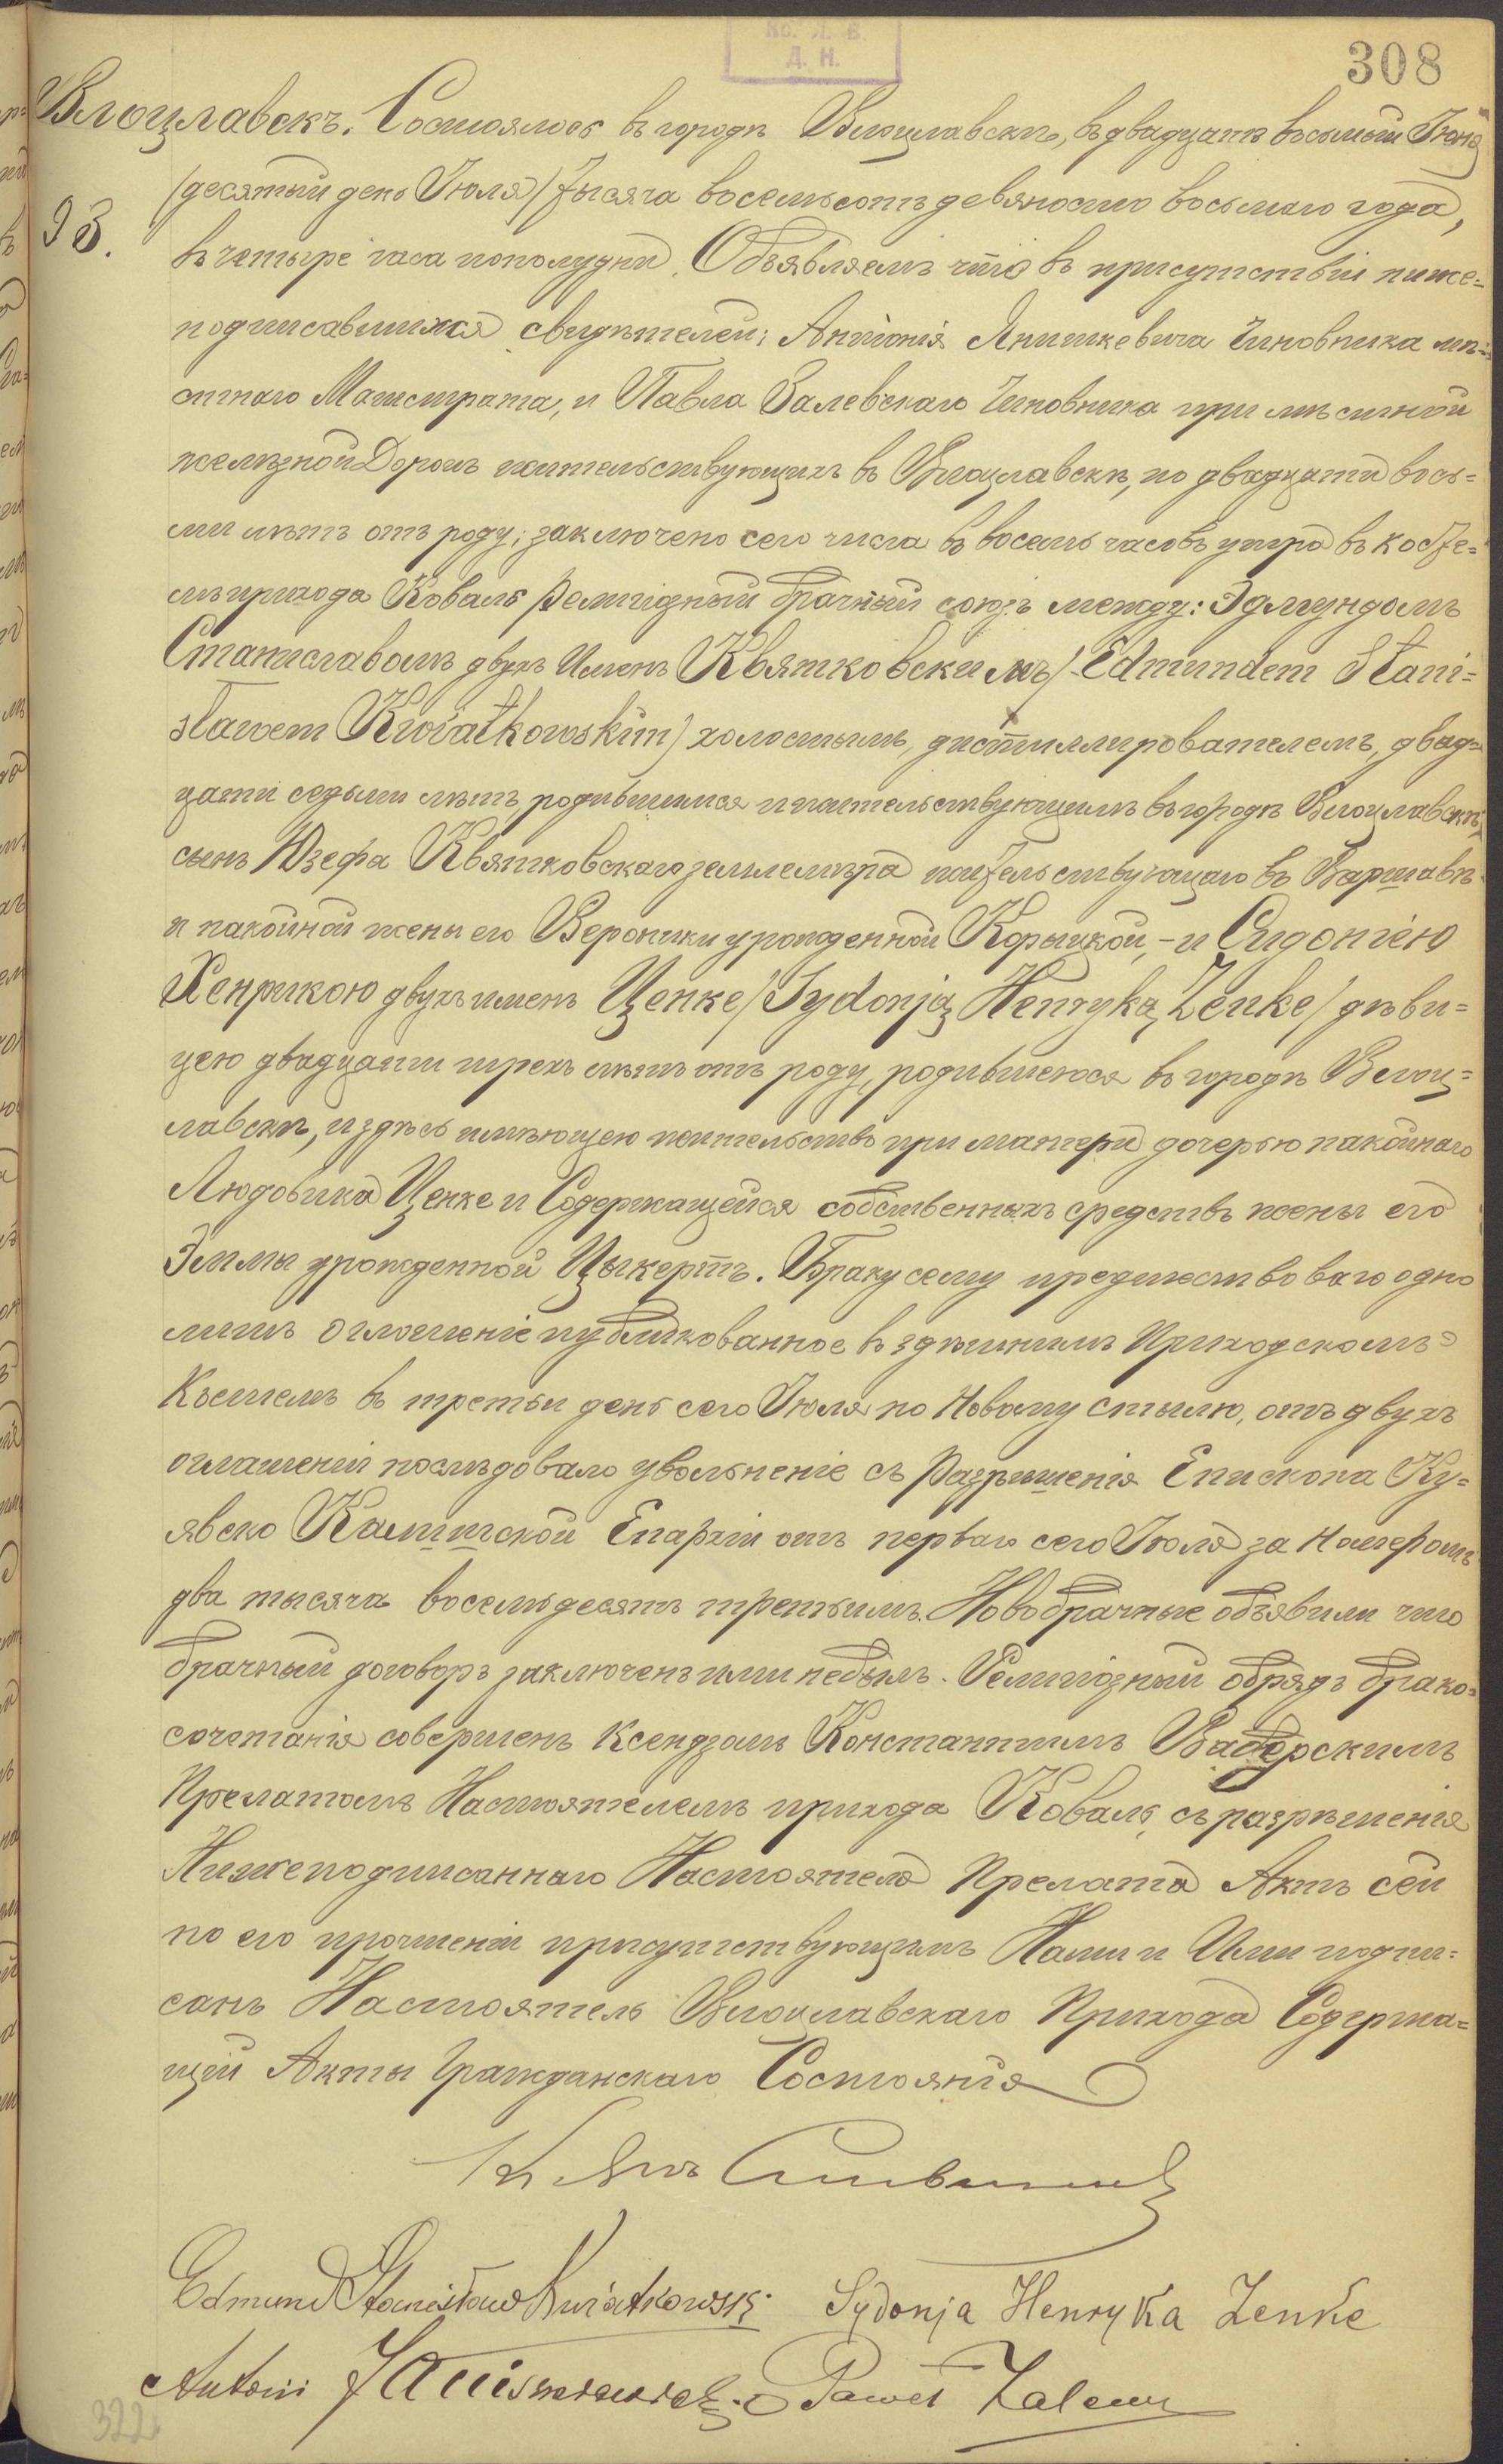 308
Влоцлавскъ. Состоялось въ городѣ Влоцлавскѣ, въ двадцать восьмый Іюня
93.
/десятый день Іюля/ тысяча восемьсотъ девяносто восьмаго года,
въ четыре часа пополудни. Объявляемъ что въ присутствіи ниже=
подписавшихся свидѣтелей: Антонія Янишкевича Чиновника мѣ=
стнаго Магистрата, и Павла Залевскаго Чиновника при мѣстной
желѣзной Дорогѣ жительствующихъ въ Влоцлавскѣ, по двадцати вось=
ми лѣтъ отъ роду; заключено сего числа въ восемь часовъ утра въ косте=
лѣ прихода Коваль религіозный брачный союзъ между: Эдмундомъ
Станиславомъ двухъ Именъ Квятковскимъ /Edmundem Stani=
sławem Kwiatkowskim/ холостымъ, дистиллирователемъ, двад=
цати седьми лѣтъ, родившимся и жительствующимъ въ городѣ Влоцлавскѣ,
сынъ Юзефа Квятковскаго землемѣра жительствующаго въ Варшавѣ
и пакойной жены его Вероники урожденной Корыцкой, - и Сидоніею
Хенрикою двухъ именъ Ценке /Sydonją Henryką Zenke/ дѣви=
цею двадцати трехъ лѣтъ отъ роду, родившеюся въ городѣ Влоц=
лавскѣ, и здѣсь имѣющею жительство при матери дочерью пакойнаго
Людовика Ценке и Содержащейся собственныхъ средствъ жены его
Эммы урожденной Цыкертъ. Браку сему предшествовало одно
лишь оглошеніе публикованное въ здѣшнимъ Приходскомъ
Късцелѣ въ третьи день сего Іюля по Новому стылю, отъ двухъ
оглашеніи послѣдовало увольненіе съ Разрѣшенія Епископа Ку=
явско Калишской Епархіи отъ перваго сего Іюля за Номеромъ
два тысяча восемьдесятъ третьимъ. Новобрачные объявили что
брачный договоръ заключенъ ими небылъ. Религіозный обрядъ брако=
сочетанія совершенъ Ксендзомъ Константимъ
Прелатомъ Настоятелемъ прихода Коваль, съ разрѣшенія
Нижеподписаннаго Настоятеля Прелата Актъ сей
по его прочтеніи присутствующимъ Нами и Ими подпи=
санъ Настоятель Влоцлавскаго Прихода Содержа=
щій Акты Гражданскаго Состоянія
Edmund Stanisław Kwiatkowski. Sydonja Henryka Zenke
Antoni Janiszkiewicz. Paweł
322